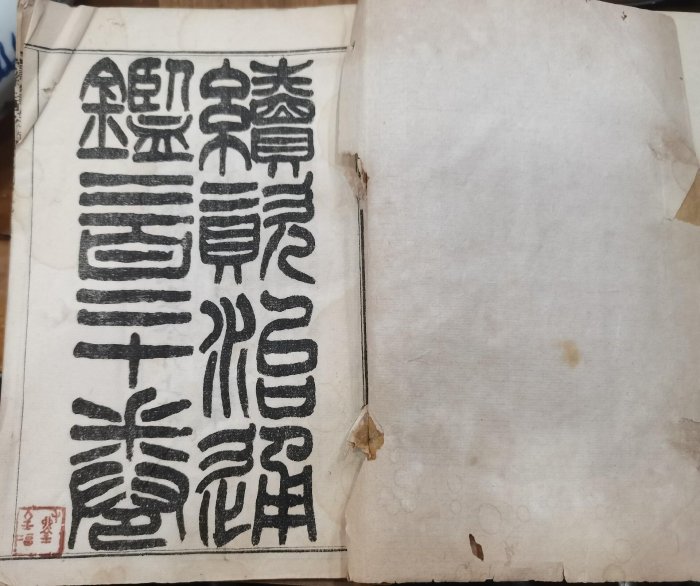 續資治通
鑑二百二十卷